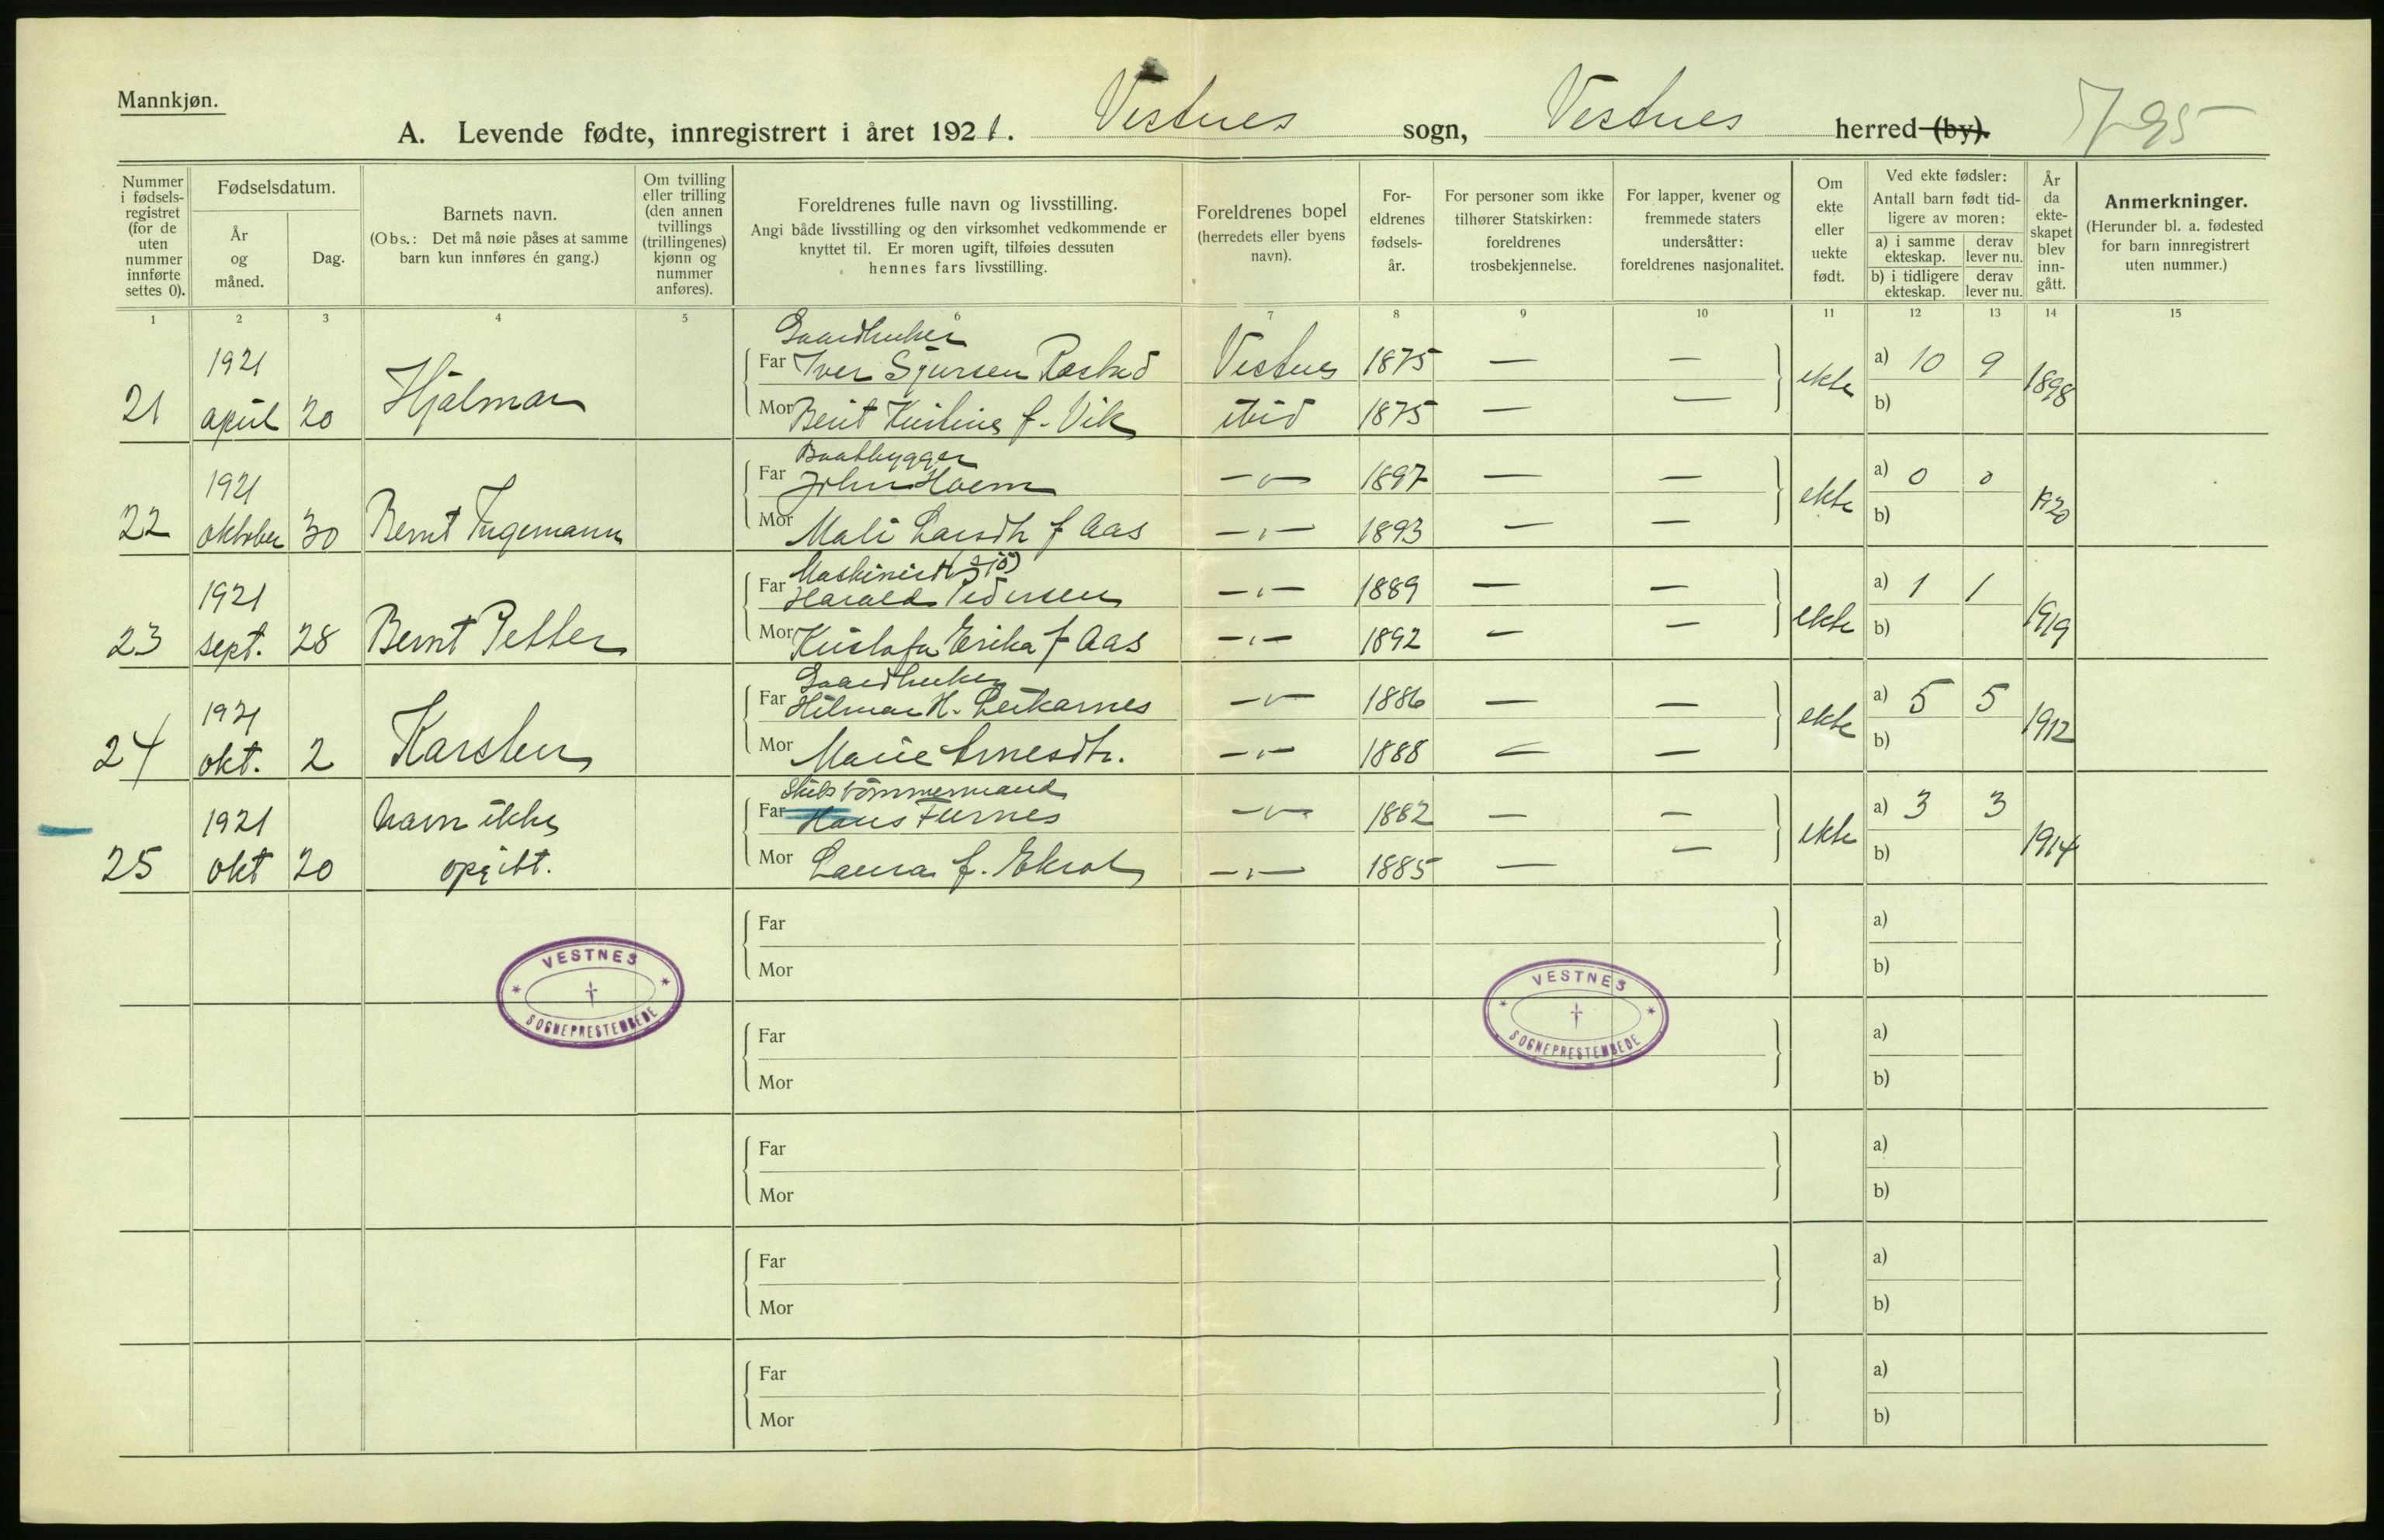 Mannkjøn.
A. Levende fødte, innregistrert i året 1921. Vestnes sogn, Vestnes herred (by).
Nummer i fødsels-registret (for de uten nummer innførte settes 0).
Fødselsdatum.
År og måned.
Dag.
Barnets navn.
(Obs.: Det må nøie påses at samme barn kun innføres én gang.)
Om tvilling eller trilling (den annen tvillings (trillingenes) kjønn og nummer anføres).
Foreldrenes fulle navn og livsstilling.
Angi både livsstilling og den virksomhet vedkommende er knyttet til. Er moren ugift, tilføies dessuten hennes fars livsstilling.
Foreldrenes bopel (herredets eller byens navn).
For-eldrenes fødsels-år.
For personer som ikke tilhører Statskirken: foreldrenes trosbekjennelse.
For lapper, kvener og fremmede staters undersåtter: foreldrenes nasjonalitet.
Om ekte eller uekte født.
Ved ekte fødsler: Antall barn født tid-ligere av moren:
a) i samme ekteskap. derav lever nu.
b) i tidligere ekteskap. derav lever nu.
År da ekte-skapet blev inn-gått.
Anmerkninger.
(Herunder bl. a. fødested for barn innregistrert uten nummer.)
1 2 3 4 5 6 7 8 9 10 11 12 13 14 15
Gaardbruker
21 1921 april 20 Hjalmar Far Iver Sjursen Rastad Vestnes 1875 — — ekte a) 10 9 1898
Mor Berit Kristine f. Vik ibid 1875 — — b)
Baatbygger
22 1921 oktober 30 Bernt Ingemann Far John Hoem —"— 1897 — — ekte a) 0 0 1920
Mor Mali Larsdtr f Aas —"— 1893 — — b)
Maskinist
23 1921 sept. 28 Bernt Petter Far Harald Pedersen —"— 1889 — — ekte a) 1 1 1919
Mor Kristofa Erika f Aas —"— 1892 — — b)
Gaardbruker
24 1921 okt. 2 Karsten Far Hilmar H. Leirkarnes —"— 1886 — — ekte a) 5 5 1912
Mor Marie Arnesdtr. —"— 1888 — — b)
Skibstømmermand
25 1921 okt 20 Navn ikke opgitt. Far Hans Furnes —"— 1882 — — ekte a) 3 3 1914
Mor Laura f. Ekrot —"— 1885 — — b)
Far a)
Mor b)
VESTNES SOGNEPRESTEMBEDE
VESTNES SOGNEPRESTEMBEDE
Far a)
Mor b)
Far a)
Mor b)
Far a)
Mor b)
Far a)
Mor b)